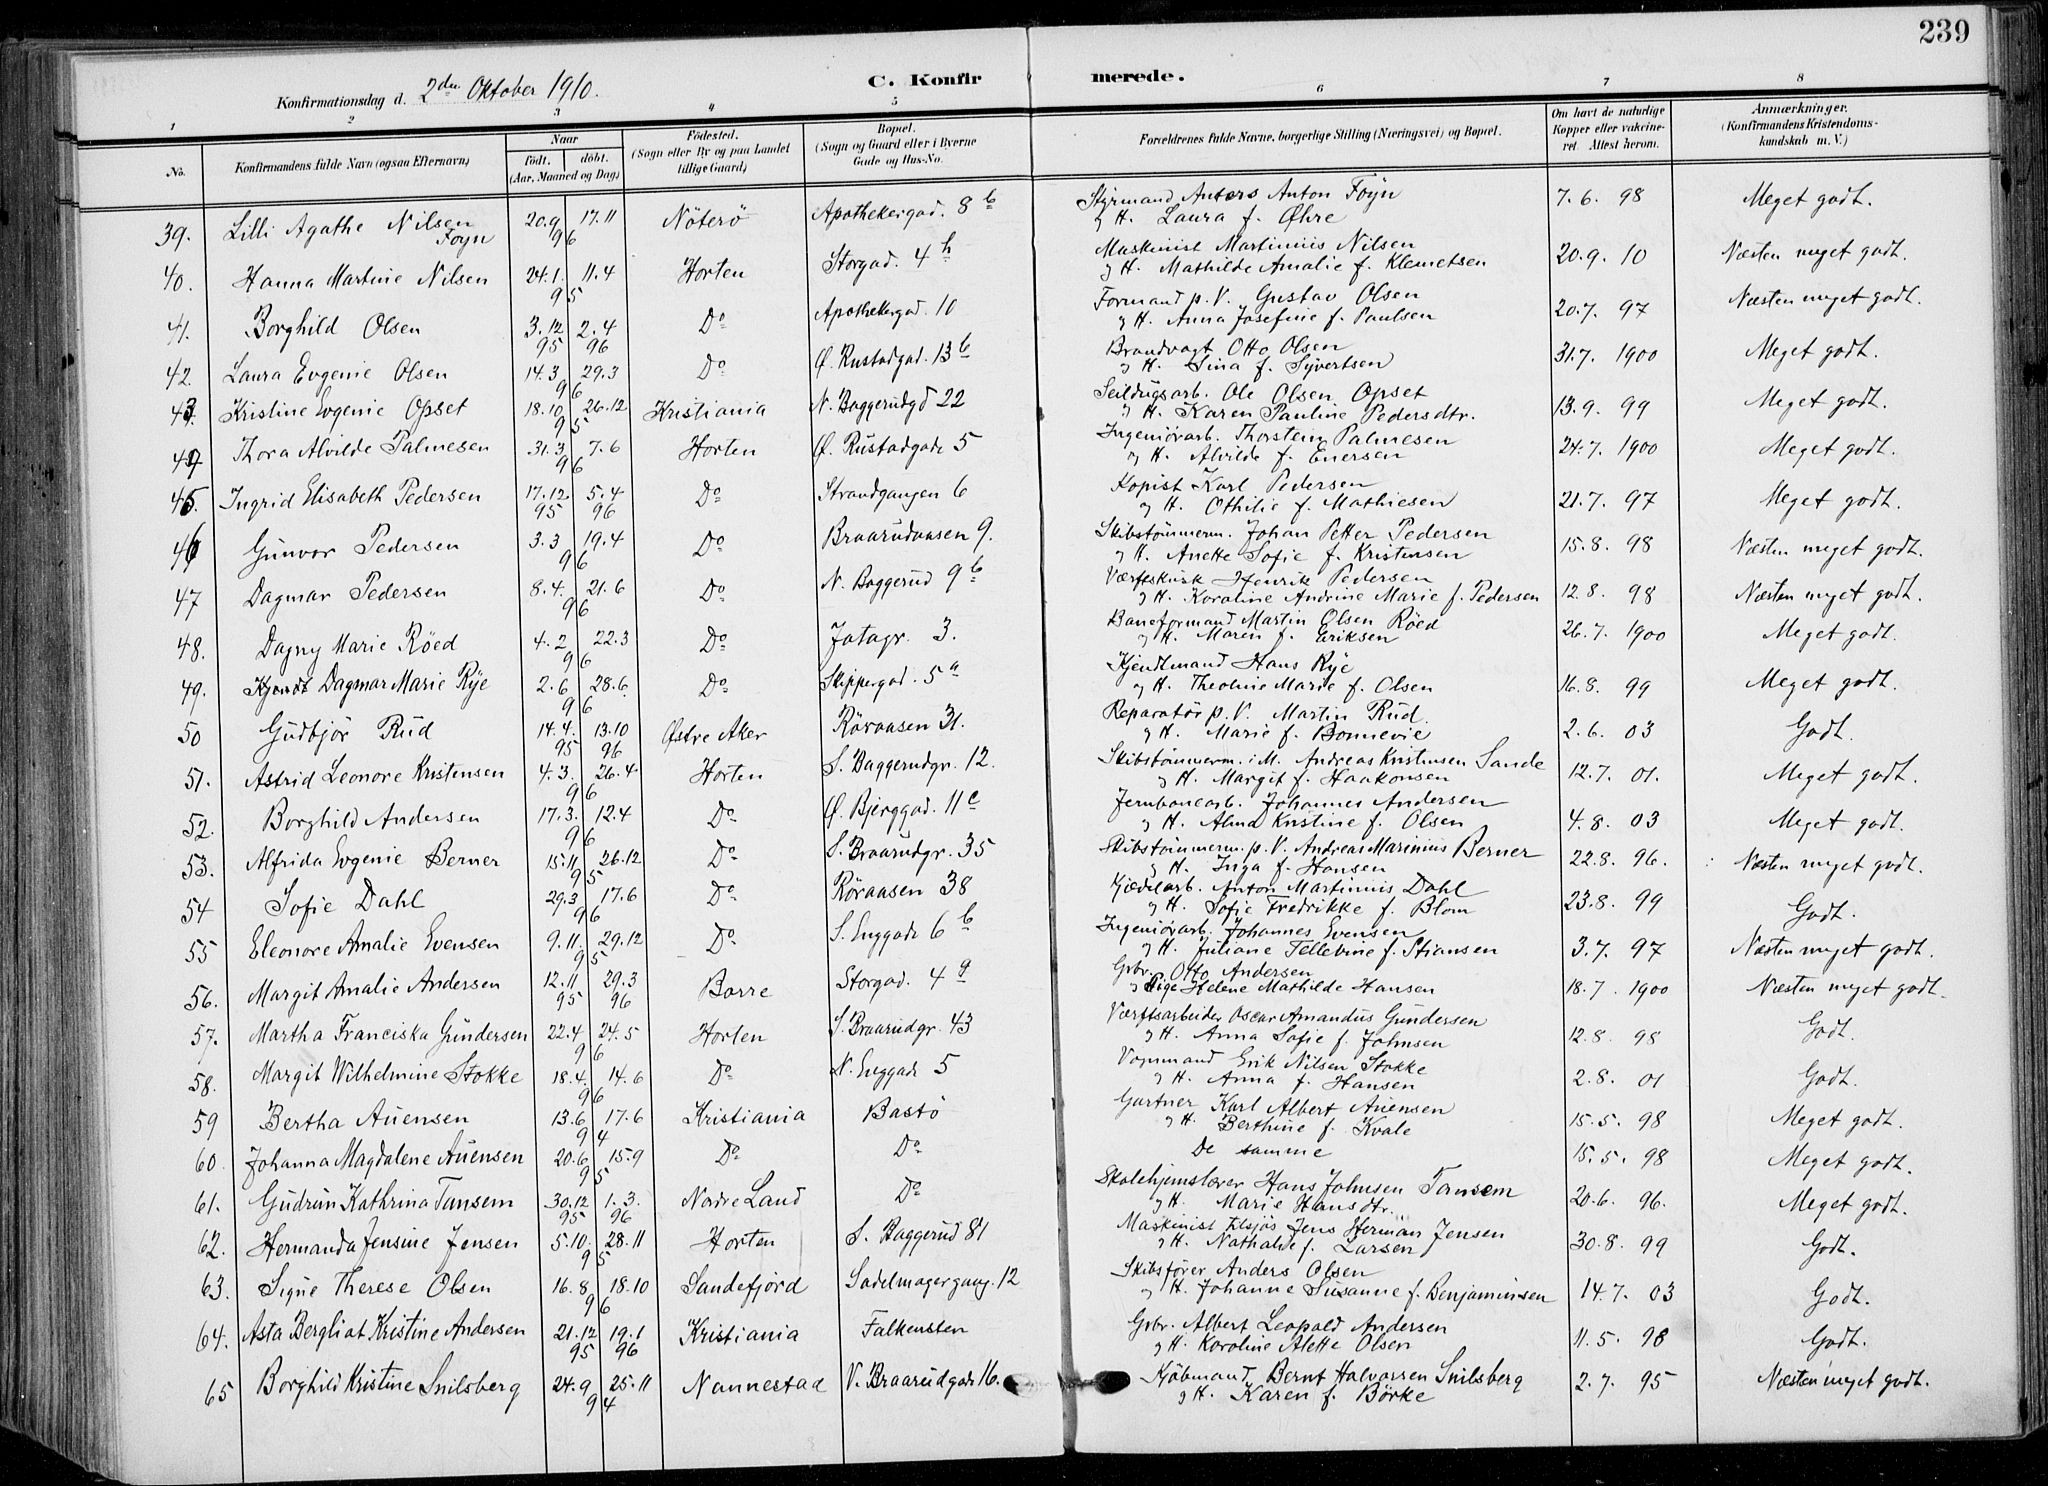 239
Konfirmationsdag d. 2den Oktober 1910.
C. Konfirmerede.
1 2 3 4 5 6 7 8
No. Konfirmandens fulde Navn (ogsaa Efternavn) Naar født. døbt. (Aar, Maaned og Dag) Fødested. (Sogn eller By og paa Landet tillige Gaard) Bopæl. (Sogn og Gaard eller i Byerne Gade og Hus-No. Forældrenes fulde Navne, borgerlige Stilling (Næringsvei) og Bopæl. Om havt de naturlige Kopper eller vakcineret. Attest herom. Anmærkninger. (Konfirmandens Kristendomskundskab m. V.)
39. Lilli Agathe Nilsen Foyn 20.9 17.11 96 Nøterø Apothekergad. 8 b Styrmand Anters Anton Föyn 7.6. 98 Meget godt.
g H. Laura f. Øhre
40. Hanna Martine Nilsen 24.1. 11.4 95 Horten Storgad. 4 b Maskinist Martinius Nilsen 20.9. 10 Næsten meget godt.
g H. Mathilde Amalie f. Klemetsen
41. Borghild Olsen 3.12 95 2.4 96 Do Apothekergad. 10 Formand p. V. Gustav Olsen 20.7. 97 Næsten meget godt.
g H. Anna Josefine f. Paulsen
42. Laura Evgenie Olsen 14.3 29.3 96 Do Ø. Rustadgad. 13 b Brandvagt Otto Olsen 31.7. 1900 Meget godt.
g H. Sina f. Syvertsen
43. Kristine Evgenie Opset 18.10 26.12 95 Kristiania N. Baggerudgd 22 Seildugsarb. Ole Olsen Opset 13.9. 99 Meget godt.
g H. Karen Pauline Pedersdtr.
Thora Alvilde Palmesen 31.3 7.6 96 Horten Ø. Rustadgade 5 Ingeniörarb. Thorstein Palmesen 24.7. 1900 Meget godt.
g H. Alvilde f. Enersen
45. Ingrid Elisabeth Pedersen 17.12. 95 5.4 96 Do Strandgangen 6 Kopist Karl Pedersen 21.7. 97 Meget godt.
g H. Othilie f. Mathiesen
46 Gunvor Pedersen 3.3 19.4 96 Do Braarudaasen 9. Skibstømmerm. Johan Petter Pedersen 15.8. 98 Næsten meget godt.
g H. Anette Sofie f. Kristensen
47 Dagmar Pedersen 8.4. 21.6 96 Do N. Baggerud 9 b Værftskusk Henrik Pedersen 12.8. 98 Næsten meget godt.
g H. Karoline Andrine Marie f. Pedersen
48. Dagny Marie Röed 4.2 22.3 96 Do Jatagr. 3. Baneformand Martin Olsen Röed 26.7. 1900 Meget godt.
g H. Maren f. Eriksen
49. Dagmar Marie Rÿe 2.6 28.6. 96 Do Skippergad. 5 a Kjendtmand Hans Rye 16.8. 99 Meget godt.
g H. Theoline Marie f. Olsen
50 Gudbjör Rud 14.4. 95 13.10 96 Østre Aker Röraasen 31. Reparatör p. V. Martin Rud. 2.6. 03 Godt.
g H. Marie f. Bonnevie
51. Astrid Leonore Kristensen 4.3. 26.4 96 Horten S. Baggerudgr. 12. Skibstømmerm. i M. Andreas Kristensen Sande 12.7. 01. Meget godt.
g H. Margit f. Haakonsen
52. Borghild Andersen 17.3. 12.4 96 Do Ø. Bjerggad. 11 c Jernbanearb. Johannes Andersen 4.8. 03 Meget godt.
g H. Alma Kristine f. Olsen
53. Alfrida Evgenie Berner 15.11 26.12 95 Do S. Braarudgr. 35 Skibstømmerm. p. V. Andreas Marinius Berner 22.8. 96. Næsten meget godt.
g H. Inga f. Hansen
54 Sofie Dahl 29.3 17.6 96 Do Röraasen 38 Kjedelarb. Anton Martinius Dahl 23.8. 99 Godt.
g H. Sofie Fredrikke f. Blom
55 Eleonore Amalie Evensen 9.11. 29.12 95 Do S. Enggade 6 b Ingeniörarb. Johannes Evensen 3.7. 97 Næsten meget godt.
g H. Juliane Tellevine f. Stiansen
56. Margit Amalie Andersen 12.11 95 29.3 96 Borre Storgad. 4 a Grbr. Otto Andersen 18.7. 1900 Næsten meget godt.
g Pige Helene Mathilde Hansen
57. Martha Franciska Gundersen 22.4. 24.5 96 Horten S. Braarudgr. 43 Værftsarbeider Oscar Amandus Gundersen 12.8. 98 Godt.
g H. Anna Sofie f. Johnsen
58. Margit Wilhelmine Stokke 18.4. 14.6 96 Do N. Enggade 5 Vognmand Erik Nilsen Stokke 2.8. 01 Godt.
g H. Anna f. Hansen
59 Bertha Auensen 13.6 17.6 94 Kristiania Bastö Gartner Karl Albert Auensen 15.5. 98 Meget godt.
g H. Berthine f. Kvale
60. Johanna Magdalene Auensen 20.6 15.9 95 Do Do De samme 15.5. 98 Meget godt.
61. Gudrun Kathrina Tansem 30.12 95 1.3. 96 Nordre Land Do Skolehjemslærer Hans Johnsen Tansem 20.6. 96. Meget godt.
g H. Marie Hansdtr.
62. Hermanda Jensine Jensen 5.10. 28.11 95 Horten S. Baggerud 81 Maskinist tilsjös Jens Herman Jensen 30.8. 99 Godt.
g H. Nathalie f. Larsen
63. Signe Therese Olsen 16.8 18.10 96 Sandefjord Sadelmagergang. 12 Skibsfører Anders Olsen 14.7. 03 Godt.
g H. Johanne Susanne f. Benjaminsen
64. Asta Bergliot Kristine Andersen 21.12 95 19.1 96 Kristiania Falkensten Grbr. Albert Leopold Andersen 11.5. 98 Godt.
g H. Karoline Alette Olsen
65 Borghild Kristine Snilsberg 24.9 25.11 94 Nannestad V. Braarudgade 16. Kjöbmand Bernt Halvorsen Snilsberg 2.7. 95 Næsten meget godt.
g H. Karen f. Börke